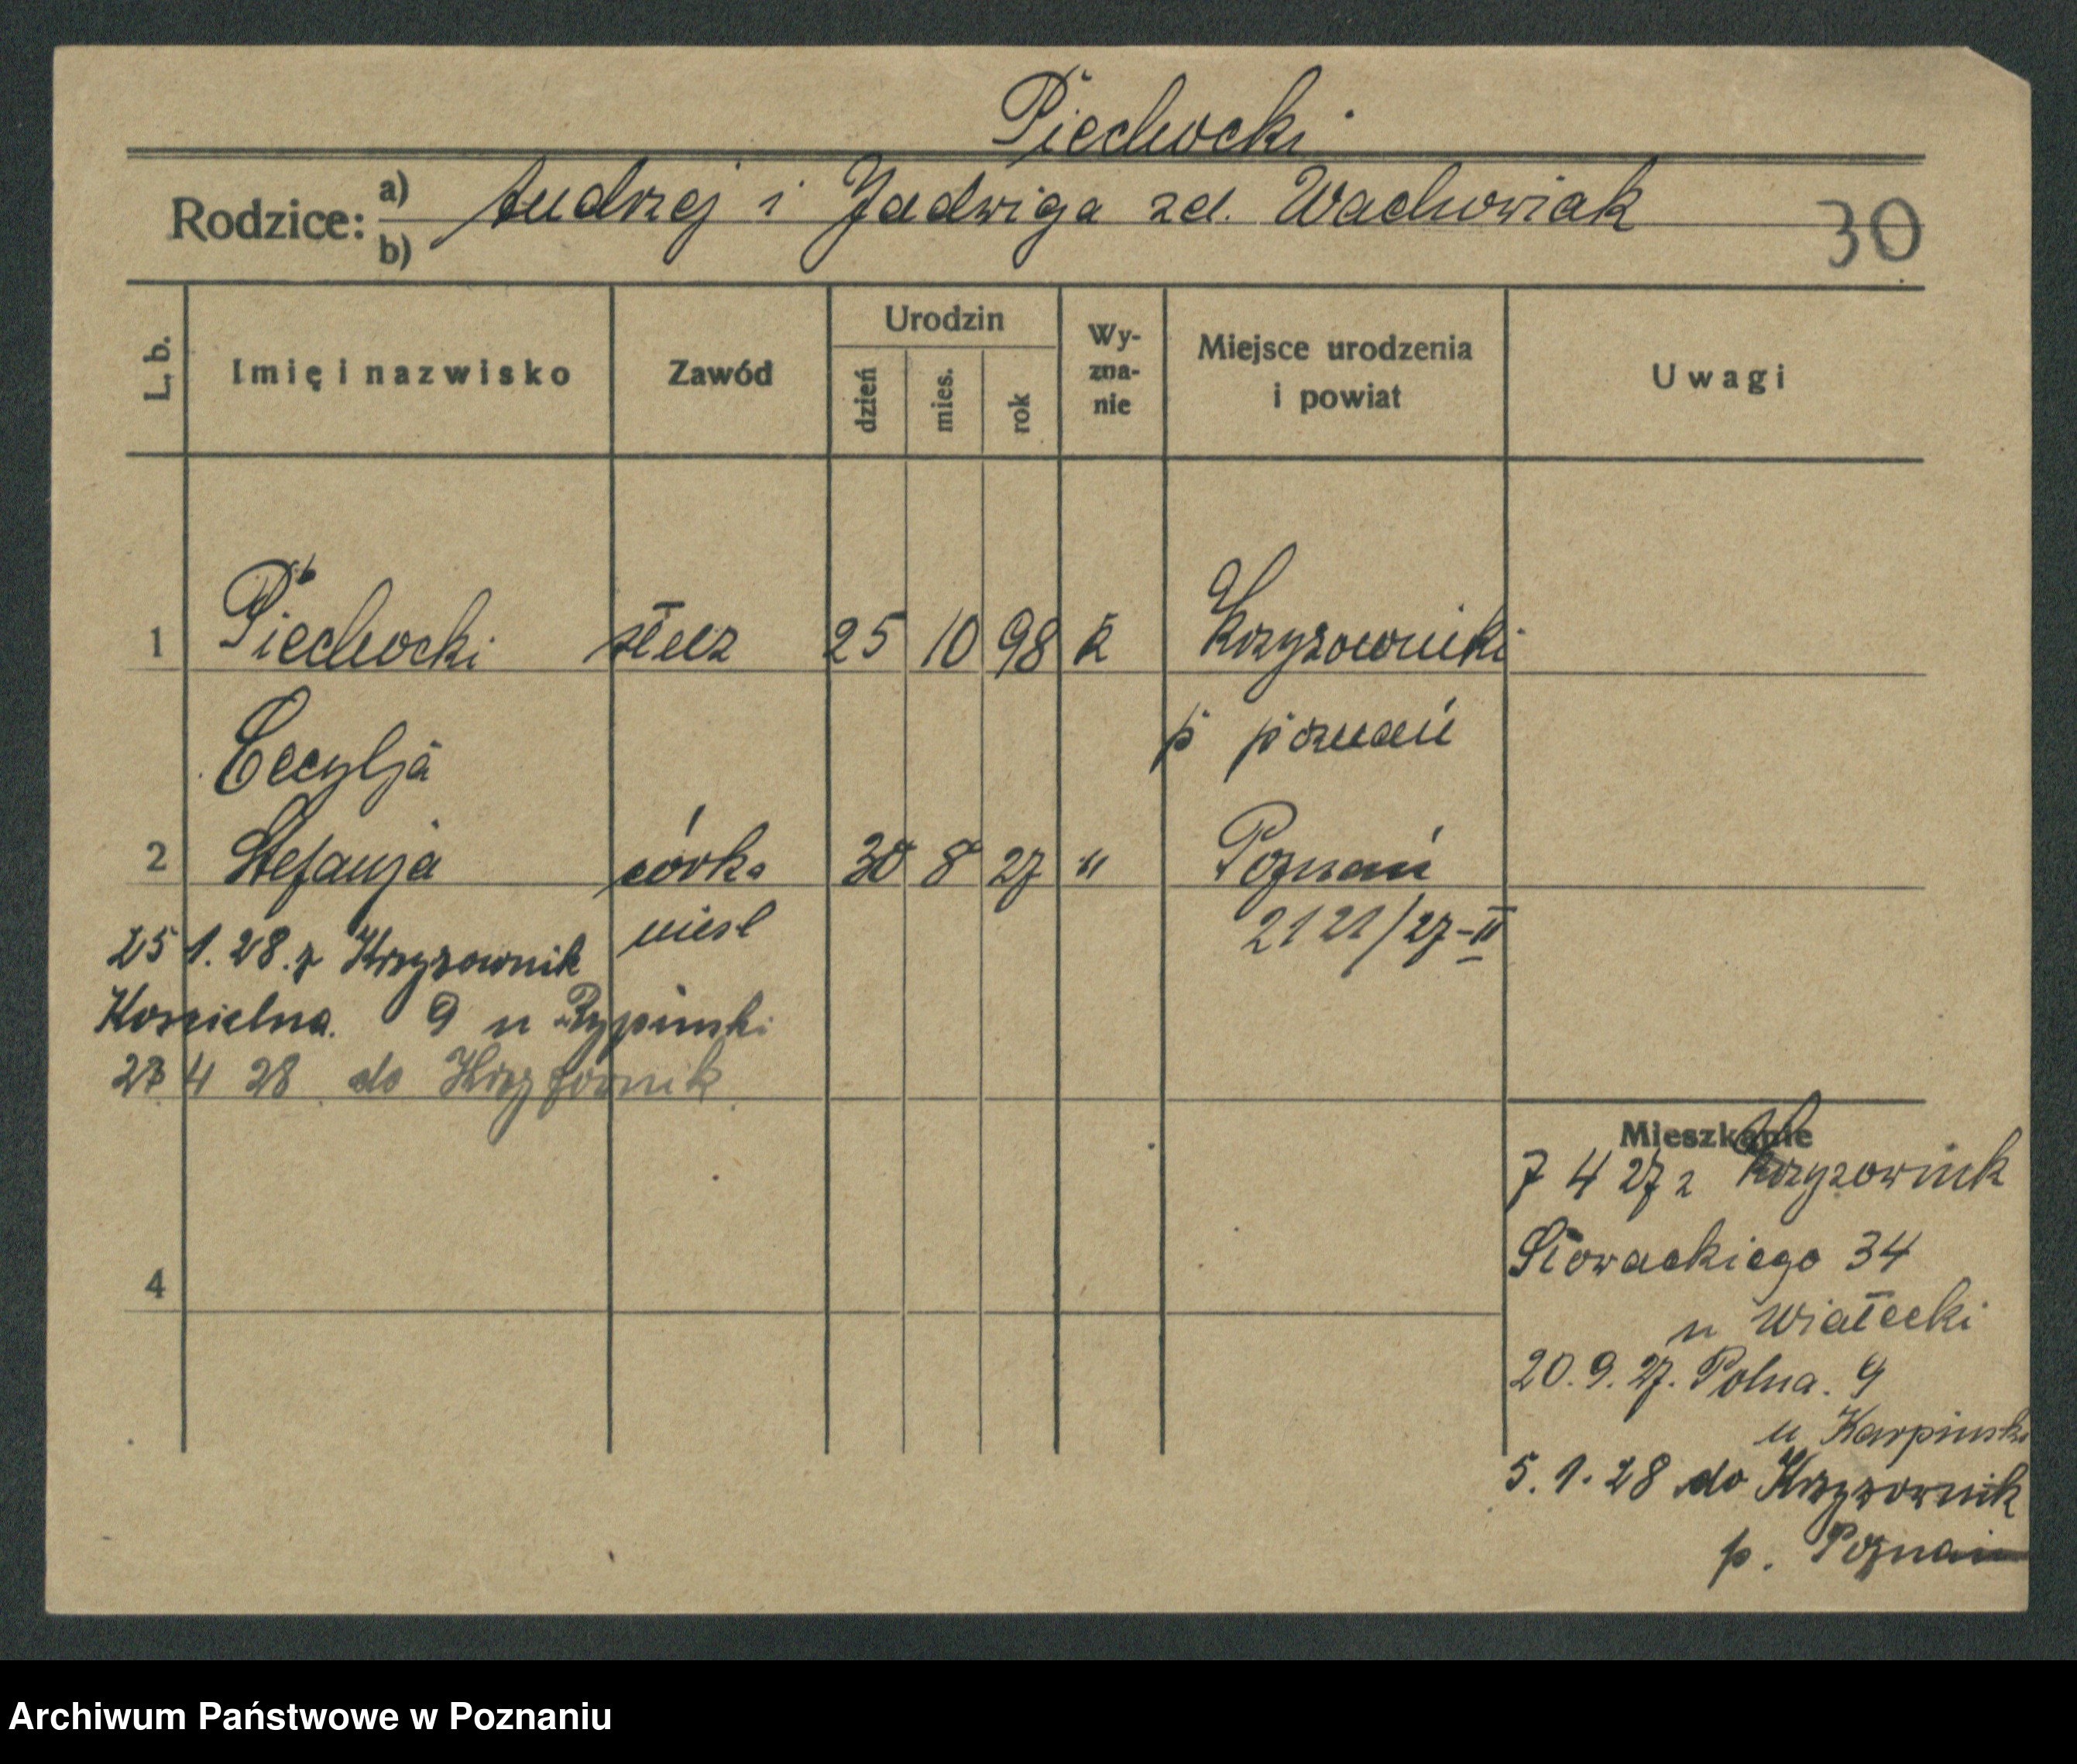 Piechocki
Rodzice: a) Andrzej i Jadwiga zd. Wachowiak
b)
30
L. b. Imię i nazwisko Zawód Urodzin dzień mies. rok Wy-zna-nie Miejsce urodzenia i powiat Uwagi
1 Piechocki 25 10 98 k Krzyzowniki
Cecylja p poznań
2 Stefanja córka 30 8 27 " Poznań
niesl 2121/27-II
25 1. 28. z Krzyzownik
Koscielna. 9 u Rypinski
23 4 28 do Krzyzownik
Mieszkanie
7 4 27 z Krzyzownik
4 Słowackiego 34
u Wiałecki
20. 9. 27. Polna. 9
u Karpinski
5. 1. 28 do Krzyzownik
p. Poznań
Archiwum Państwowe w Poznaniu